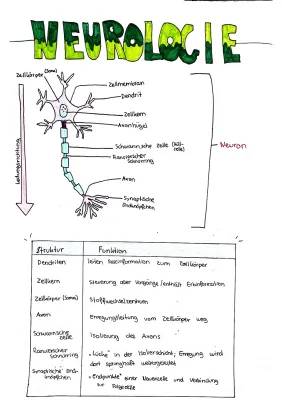 NEUROLOGIE
Zellkörper (Soma)
Zellmembran
Dendrit
Zellkern
Axonhügel
Schwannsche Zelle (Hüllzelle)
Ranvierscher
Schnürring
Axon
Synaptische
Endknöpfchen
Neuron
Leitungsrichtung
Struktur Funktion
Dendriten leiten Reizinformation zum Zellkörper
Zellkern Steuerung aller Vorgänge / enthält Erbinformation
Zellkörper (Soma) Stoffwechselzentrum
Axon Erregungsleitung vom Zellkörper weg
Schwannsche
Zelle Isolierung des Axons
Ranvierscher
Schnürring "Lücke" in der Isolierschicht; Erregung wird
dort sprunghaft weitergeleitet
Synaptische End-
knöpfchen "Endpunkte" einer Nervenzelle und Verbindung
zur Folgezelle